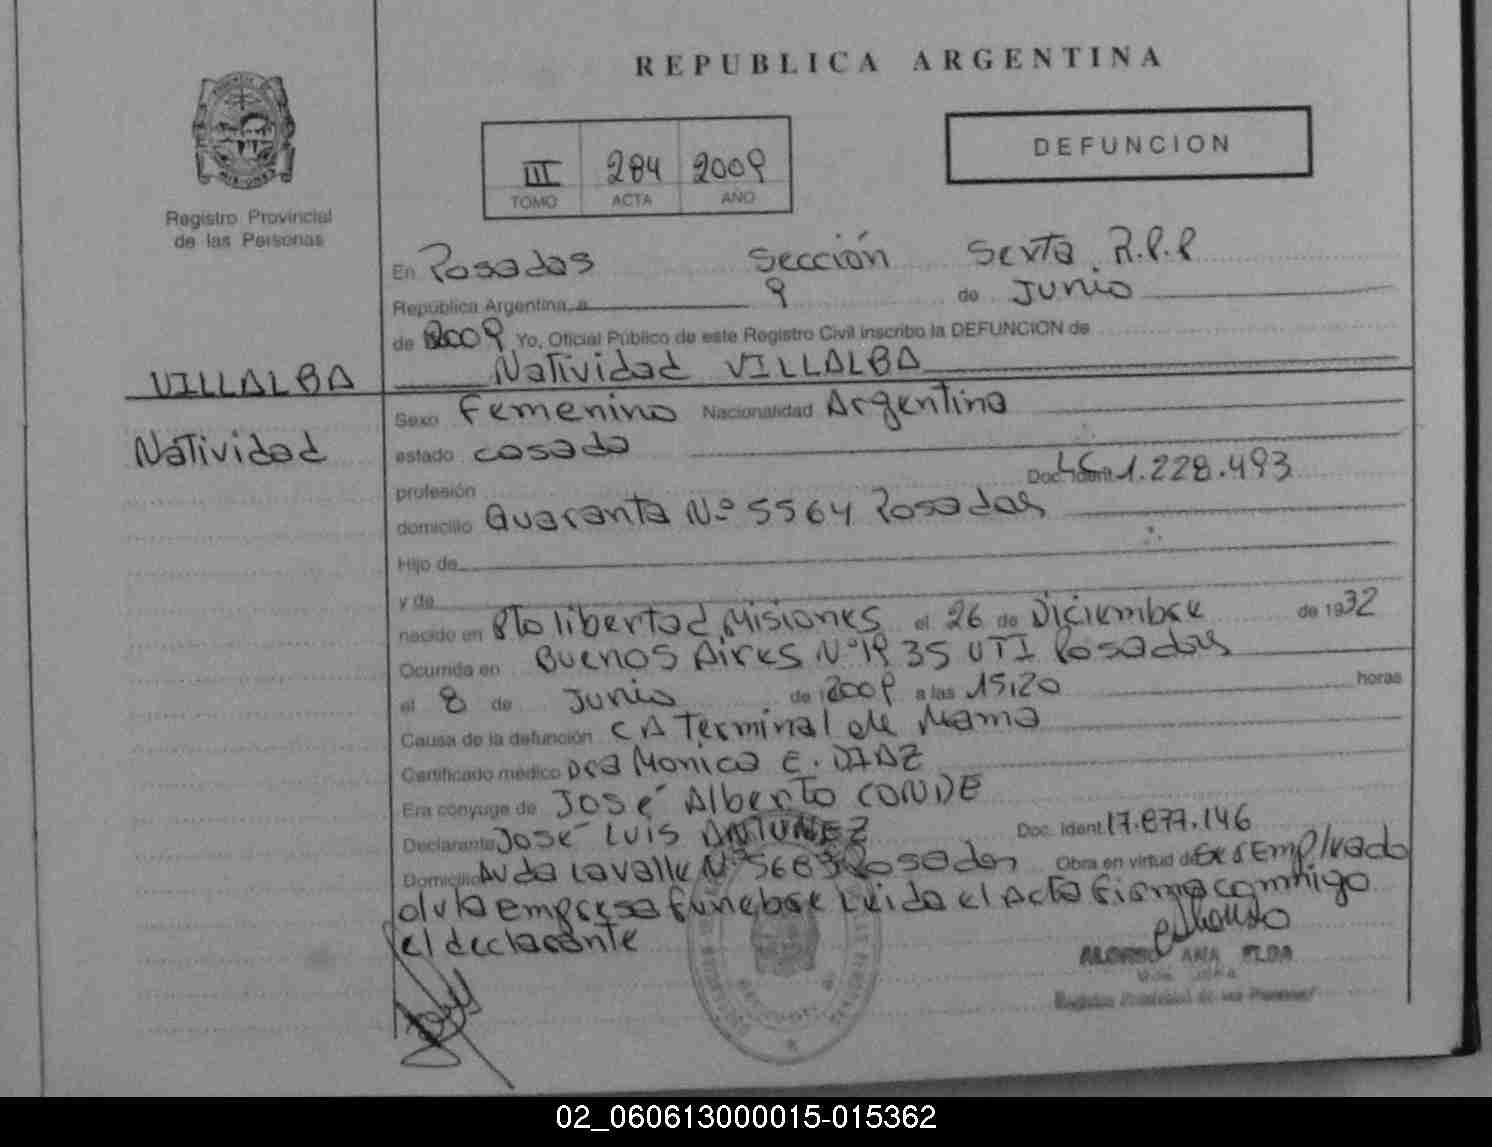 REPUBLICA ARGENTINA
III 284 2009
TOMO ACTA AÑO
DEFUNCION
Registro Provincial
de las Personas
En Posadas Sección Sexta R.P.P
República Argentina, a 9 de Junio
de 2009 Yo, Oficial Público de este Registro Civil inscribo la DEFUNCION de
VILLALBA
Natividad VILLALBA
Natividad
Sexo Femenino Nacionalidad Argentina
estado casada
profesión Doc. Ident. LC 1.228.493
domicilio Quaranta Nº 5564 Posadas
Hijo de
y de
nacido en Pto libertad Misiones el 26 de Diciembre de 1932
Ocurrida en Buenos Aires Nº 1935 UTI Posadas
el 8 de Junio de 2009 a las 15,20 horas
Causa de la defunción CA Terminal de Mama
Certificado médico Dra Monica E. DIAZ
Era cónyuge de José Alberto CONDE
Declarante José Luis ANTUNEZ Doc. Ident. 17.877.146
Domicilio Avda Lavalle Nº 5683 Posadas Obra en virtud de ser Empleado
de la empresa funebre Leida el Acta firma conmigo
el declarante
ALONSO ANA ELDA
Registro Provincial de las Personas
02_060613000015-015362